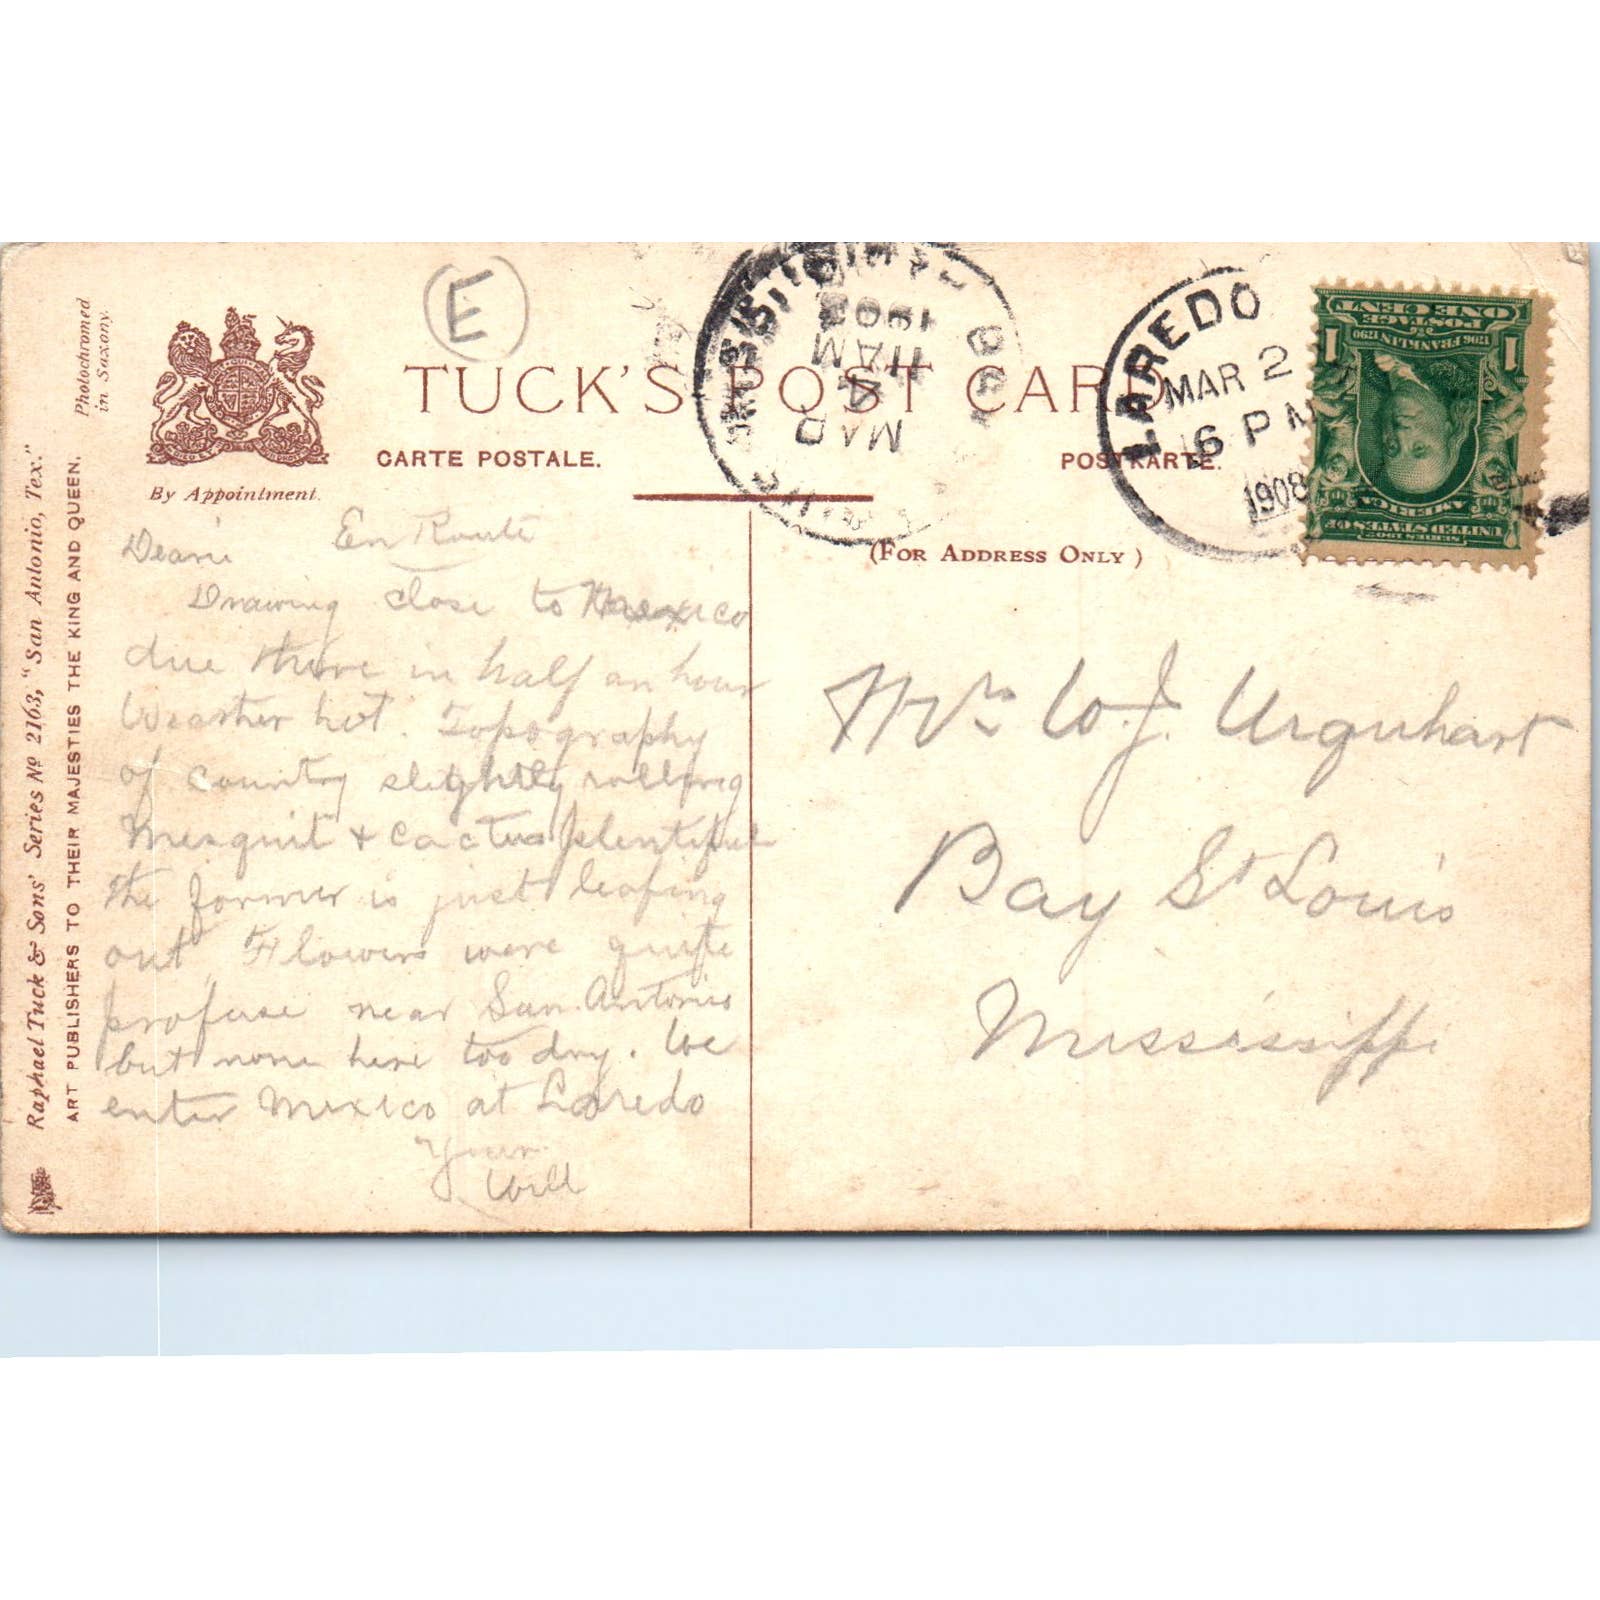 Photochromed
in Saxony.
Raphael Tuck & Sons' Series No 2163, "San Antonio, Tex."
ART PUBLISHERS TO THEIR MAJESTIES THE KING AND QUEEN.
E
TUCK'S POST CARD
CARTE POSTALE.
POSTKARTE.
By Appointment.
(FOR ADDRESS ONLY)
MAR
4
11 AM
1908
LAREDO
MAR 2
6 PM
1908
SERIES 1902
UNITED STATES OF
AMERICA
1706 FRANKLIN 1790
POSTAGE
ONE CENT
1 1
En Route
Dearie
Drawing close to Mexico
due there in half an hour
Weather hot. Topography
of country slightly rolling
Mesquit + cactus plentiful
the former is just leafing
out. Flowers were quite
profuse near San Antonio
but none here too dry. We
enter Mexico at Laredo
Your
Will
Mrs W. J. Urquhart
Bay St Louis
Mississippi